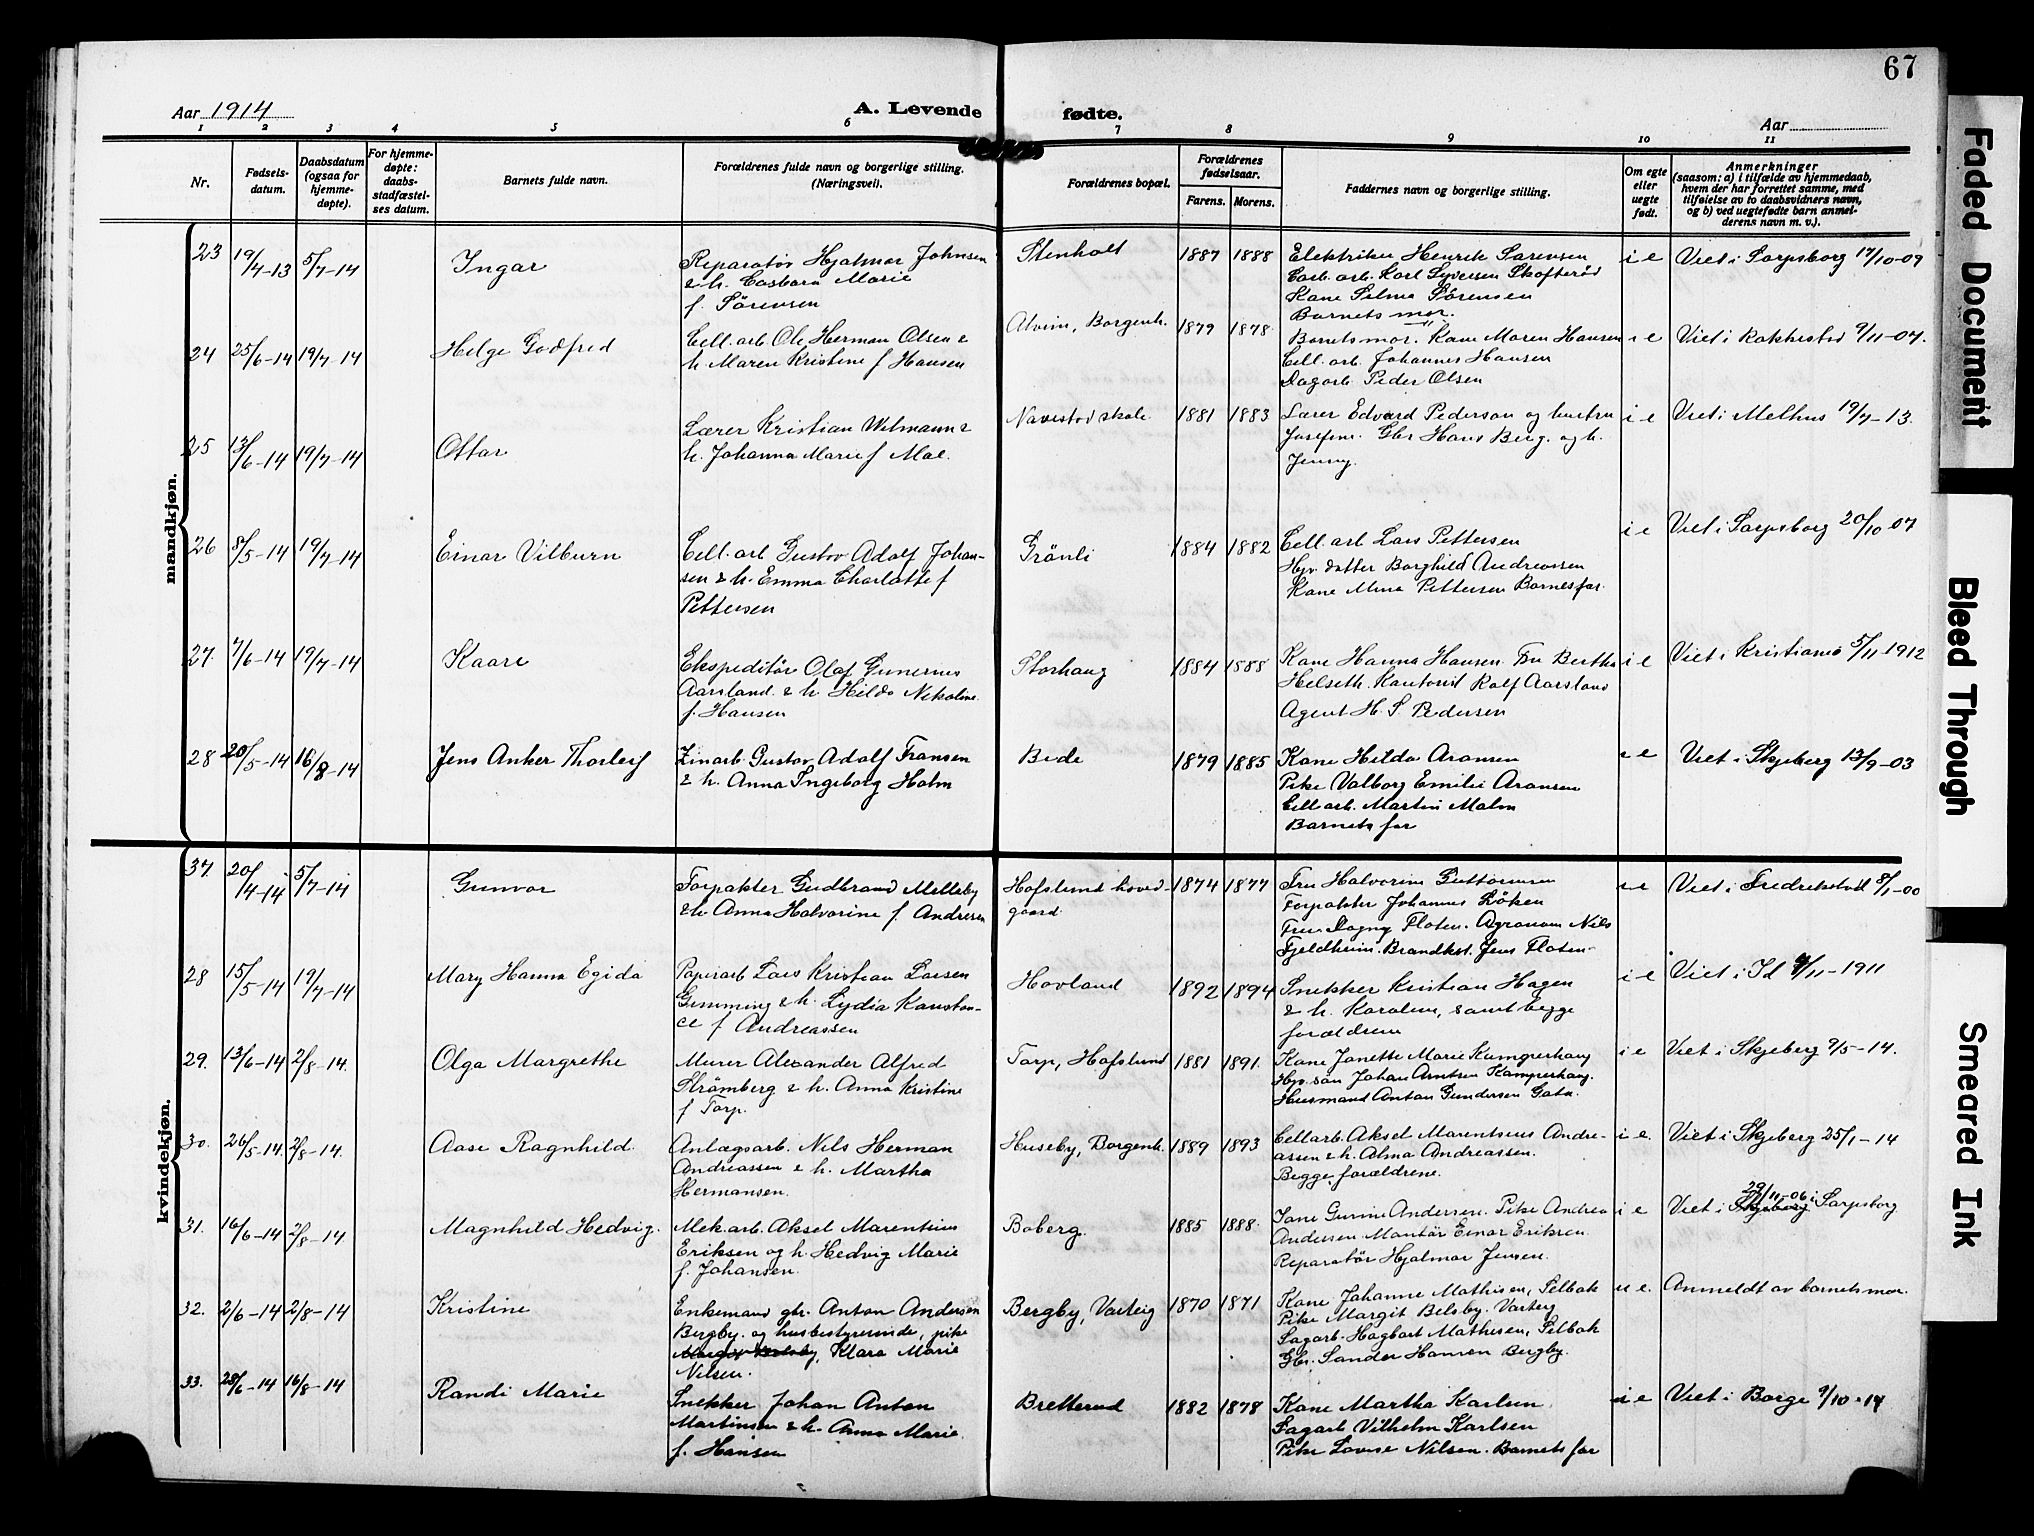 67
Aar 1914
A. Levende fødte.
Aar
1 2 3 4 5 6 7 8 9 10 11
Nr.
Fødsels-
datum.
Daabsdatum
(ogsaa for
hjemme-
døpte).
For hjemme-
døpte:
daabs-
stadfæstel-
ses datum.
Barnets fulde navn.
Forældrenes fulde navn og borgerlige stilling.
(Næringsvei).
Forældrenes bopæl.
Forældrenes
fødselsaar.
Farens. Morens.
Faddernes navn og borgerlige stilling.
Om egte
eller
uegte
født.
Anmerkninger
(saasom: a) i tilfælde av hjemmedaab,
hvem der har forrettet samme, med
tilføielse av to daabsvidners navn,
og b) ved uegtefødte barn anmel-
derens navn m. v.).
mandkjøn.
23 19/4-13 5/7-14
Ingar
Reparatør Hjalmar Johnsen
& h. Marie
f. Sörensen
Stenholt
1887 1888
Elektriker Henrik Sørensen
Karl Syversen Skofterød
Kane Selma Sörensen
Barnets mor.
i e
Viet i Sarpsborg 17/10-09
24 25/6-14 19/7-14
Helge Godfred
Cell. arb. Ole Herman Olsen &
h. Maren Kristine f Hansen
Alvim, Borgenh.
1879 1878
Barnets mor. Kane Maren Hansen
Cell. arb. Johannes Hansen
Dagarb. Peder Olsen
i e
Viet i Rakkestad 9/11-07.
25 13/6-14 19/7-14
Ottar
Lærer Kristian Wilmann &
h. Johanna Marie f Moe.
Navestad skole
1881 1883
Lærer Edvard Pederson og hustru
Josefine. Gbr Hans Berg. og h.
Jenny.
i e
Viet i Melhus 19/7-13.
26 8/5-14 19/7-14
Einar Vilburn
Cell. arb Gustav Adolf Johan-
sen & h. Emma Charlotte f
Pettersen
Grönli
1884 1882
Cell. arb Lars Pettersen
Hjv. datter Borghild Andreassen
Kane Mina Pettersen Barnets far.
i e
Viet i Sarpsborg 20/10-07
27. 7/6-14 19/7-14
Kaare
Ekspeditör Olaf Gunerius
Aarsland. & h. Hilda Nikoline
f. Hansen
Storhaug
1884 1888
Kane Hanna Hansen. Fru Bertha
Helseth. Kantorist Rolf Aarsland
Agent H. S. Pedersen
i e
Viet i Kristiania 5/11-1912
28 20/5-14 16/8-14
Jens Anker Thorleif
Linarb. Gustav Adolf Fransen
& h. Anna Ingeborg Holm
Bede
1879 1885
Kane Hilda Aronsen
Pike Valborg Emilie Aronsen
Cell arb. Martin Malm
Barnets far
i e
Viet i Skjeberg 13/9-03
kvindekjøn.
37. 20/4-14 5/7-14
Gunvor
Forpakter Gudbrand Melleby
& h. Anna Halvorine f. Andresen
Hafslund hoved-
gaard
1874 1877
Fru Halvorine Guttormsen
Forpakter Johannes Löken
Fru Dagny Floten. Agronom Nils
Fjeldheim. Brandkst. Jens Floten
i e
Viet i Fredrikstad 8/1-00
28 15/5-14 19/7-14
Mary Hanna Egida
Papirarb Lars Kristian Larsen
Gimming & h. Lydia Konstan-
ce f Andreassen
Hovland
1892 1894
Snekker Kristian Hagen
& h. Karoline, samt begge
forældrene
i e
Viet i Id 4/11-1911
29. 13/6-14 2/8-14.
Olga Margrethe
Murer Alexander Alfred
Strömberg & h. Anna Kristine
f Torp.
Torp, Hafslund
1881 1891.
Kane Janette Marie Kamperhaug
Hjv. søn Johan Arntsen Kamperhaug.
Husmand Anton Gundersen Gata.
i e
Viet i Skjeberg 9/5-14.
30. 26/5-14. 2/8-14.
Aase Ragnhild.
Anlægsarb. Nils Herman
Andreassen & h. Martha
Hermansen.
Huseby, Borgenh.
1889 1893
Cellarb. Aksel Marentius Andre-
assen & h. Alma Andreassen.
Begge forældrene.
i e.
Viet i Skjeberg 25/1-14
31. 16/6-14 2/8-14
Magnhild Hedvig.
Mek. arb. Aksel Marentius
Eriksen og h. Hedvig Marie
f. Johansen.
Boberg.
1885 1888.
Gunine Andersen. Pike Andrea
Andersen Montör Einar Eriksen
Reparatör Hjalmar Jensen.
i e
29/11-06 i
Viet i Skjeberg Sarpsborg
32. 2/6-14 2/8-14
Kristine
Enkemand gbr. Anton Andersen
Bergby. og husbestyrerinde, pike
Margit Belsby, Klara Marie
Nilsen.
Bergby, Varteig
1870 1871
Kane Johanne Mathisen, Selbak
Pike Margit Belsby. Varteig
Sagarb. Hagbart Mathisen, Selbak
Gbr. Sander Hansen Bergby.
u e.
Anmeldt av barnets mor.
33. 28/6-14 16/8-14
Randi Marie
Snekker Johan Anton
Martinsen & h. Anna Marie
f. Hansen
Bretterud
1882 1878
Kane Martha Karlsen
Fagarb Vilhelm Karlsen
Pike Lovise Nilsen. Barnets far
i e
Viet i Borge 9/10-14
Faded Document
Bleed Through
Smeared Ink